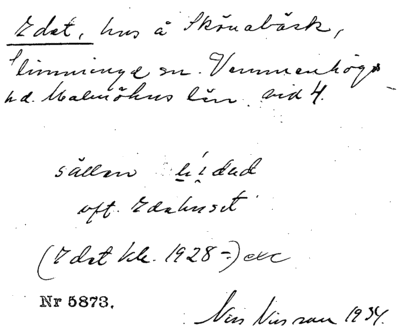 Edet, hus å Skönabäck,
Slimminge sn. Vemmenhögs
hd. Malmöhus län. vid 4.
sällan
oft. Edahuset
(Edet kk. 1928 -) etc
Nr 5873.
Nils Nilsson 1934.